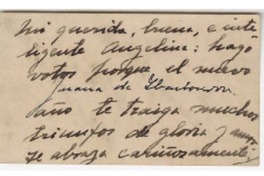 Mi querida, buena, e inte-
ligente Angelina: hago
votos porque el nuevo
Juana de Ibarbourou
año te traiga muchos
triunfos de gloria y amor
Te abraza cariñosamente: